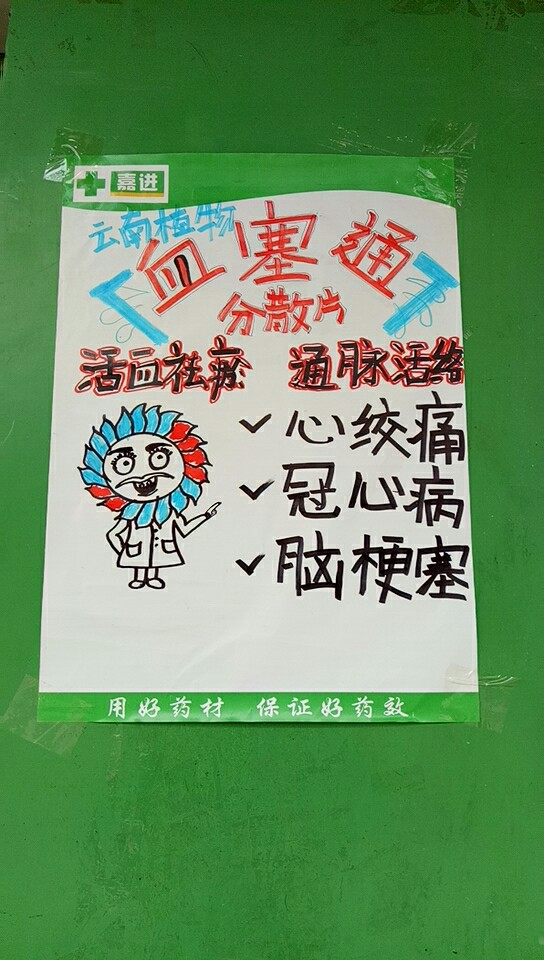 嘉进
云南植物
血塞通
分散片
活血祛瘀 通脉活络
✓心绞痛
✓冠心病
✓脑梗塞
用好药材 保证好药效